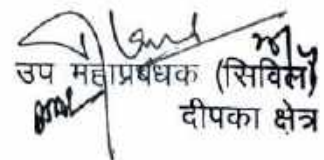 उप महाप्रबंधक (सिविल)
दीपका क्षेत्र